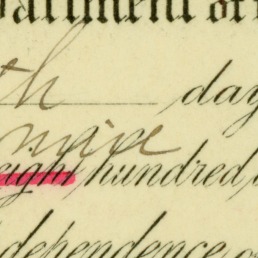 partment of
th day
nine
eight hundred
dependence o